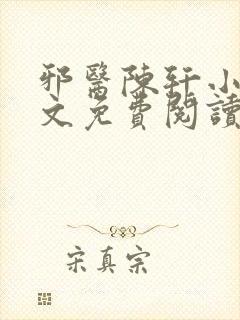 邪醫陳軒小
文免費閱讀
宋真宗